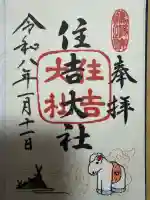 奉拝
住吉大社
住吉大社
令和八年一月十一日